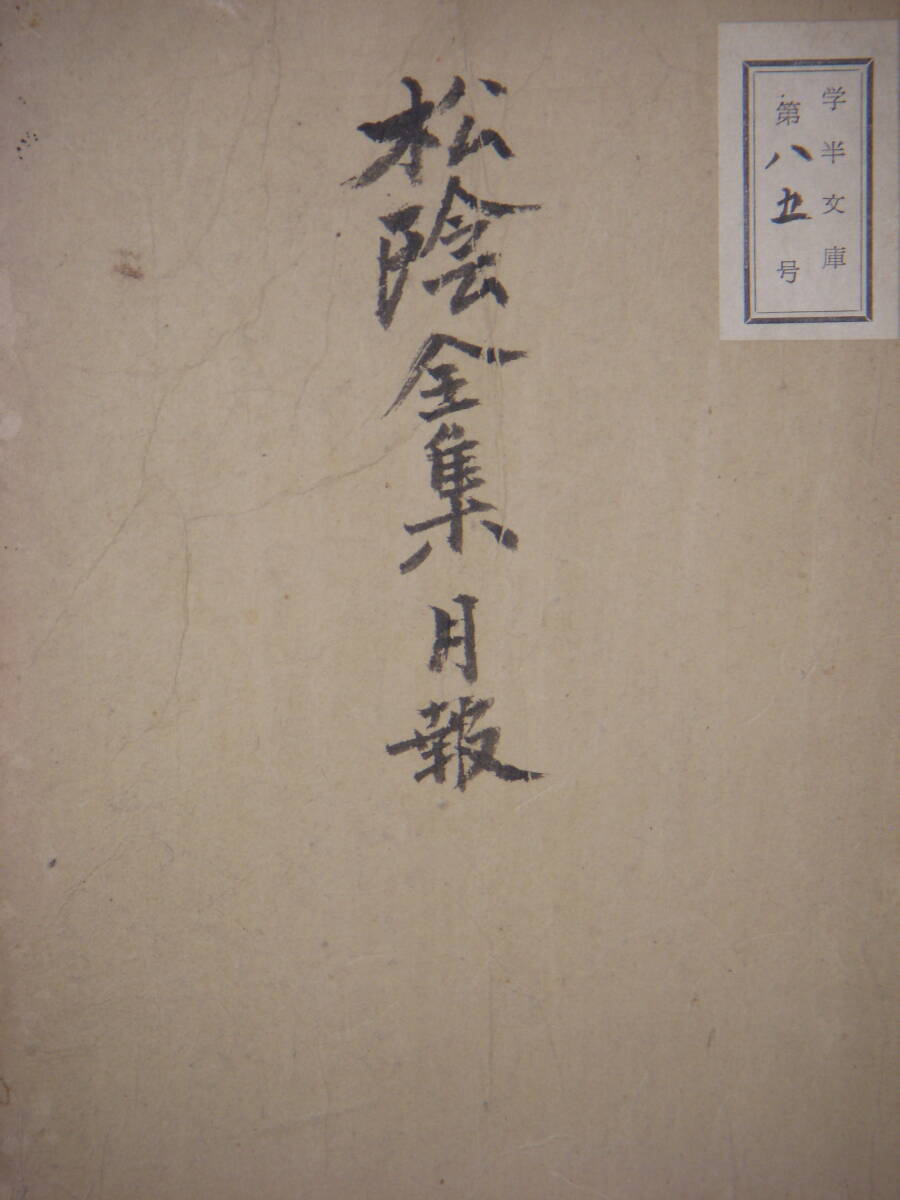 学半文庫
第八五号
松陰全集月報